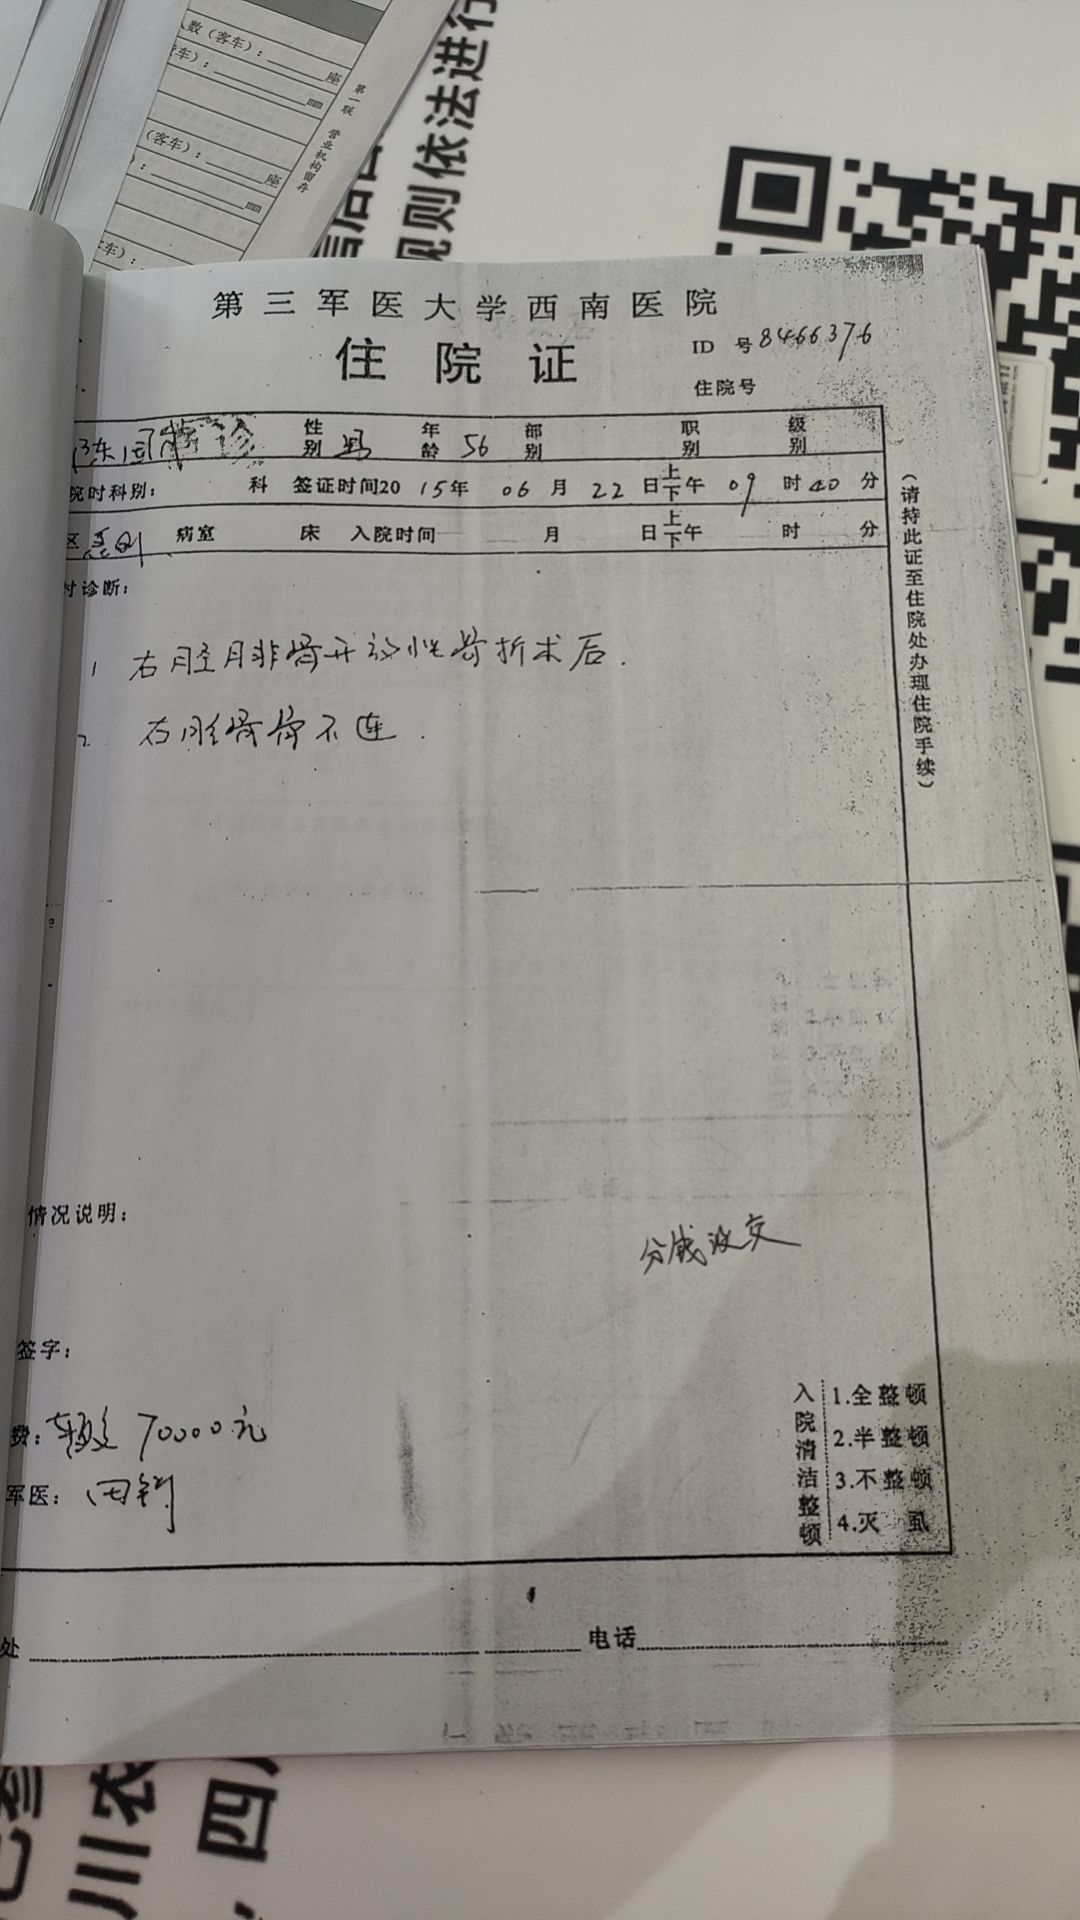 人数（客车）：座
车）：mm
（客车）：座
）：mm
车）：
第一联 营业机构留存
规则依法进行
第三军医大学西南医院
住院证
ID 号8466376
住院号
性别 男 年龄 56 部别 职别 级别
院时科别： 科 签证时间2015年06月22日上下午09时40分
区 急创 病室 床 入院时间 月 日上下午 时 分
（请持此证至住院处办理住院手续）
时诊断：
1 右胫腓骨开放性骨折术后.
2 右胫骨骨不连.
情况说明：
分钱没交
签字：
费： 70000元
军医： 田钊
入院清洁整顿
1.全整顿
2.半整顿
3.不整顿
4.灭 虱
处 电话
川农
，四川